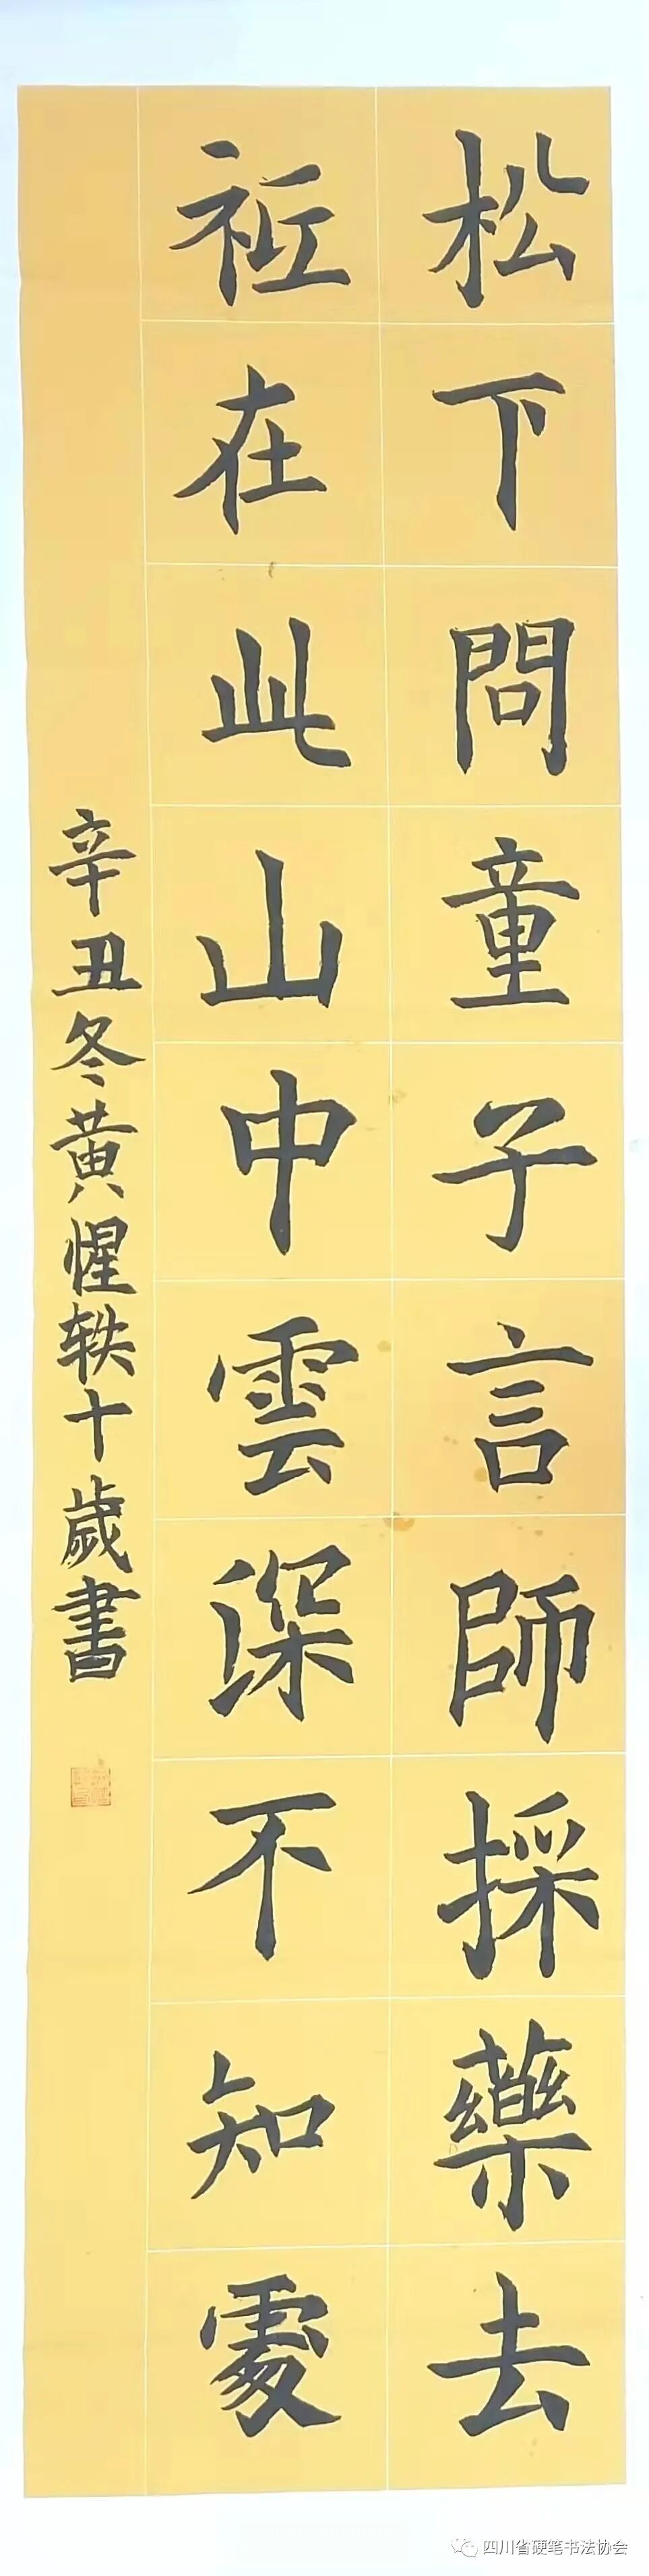 松下問童子言師採藥去
祗在此山中雲深不知處
辛丑冬黄惺轶十歲書
四川省硬笔书法协会